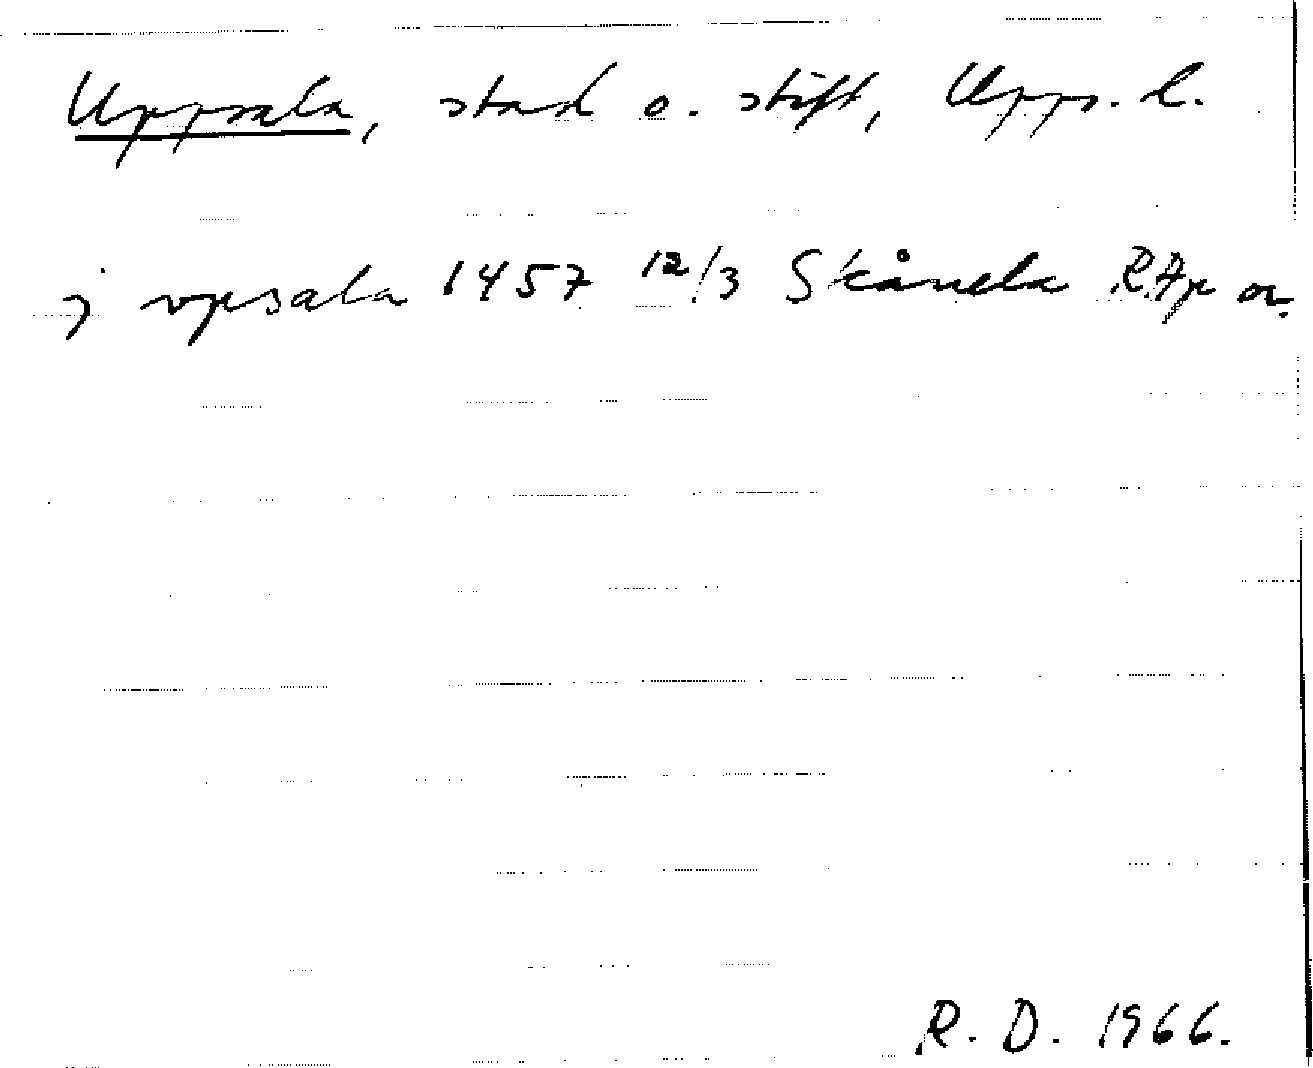 Uppsala, stad o. stift, Upps. l.
j vpsala 1457 12/3 Skånela RAp or.
R. D. 1966.